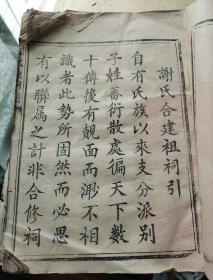 謝氏合建祖祠引
自有氏族以來支分派別
子姓蕃衍散處徧天下數
十傳後有覿面而渺不相
識者此勢所固然而必思
有以聯属之計非合修祠